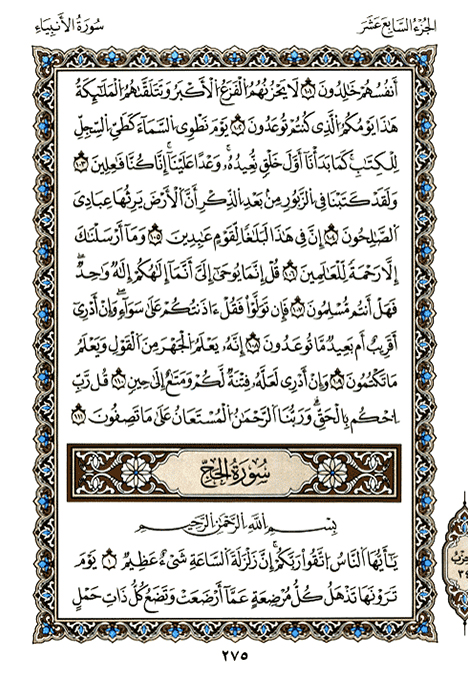 الجزء السابع عشر
سورة الأنبياء
أَنفُسُهُمْ خَالِدُونَ ١٠٢ لَا يَحْزُنُهُمُ الْفَزَعُ الْأَكْبَرُ وَتَتَلَقَّاهُمُ الْمَلَائِكَةُ
هَذَا يَوْمُكُمُ الَّذِي كُنتُمْ تُوعَدُونَ ١٠٣ يَوْمَ نَطْوِي السَّمَاءَ كَطَيِّ السِّجِلِّ
لِلْكِتَابِ كَمَا بَدَأْنَا أَوَّلَ خَلْقٍ نُّعِيدُهُ وَعْدًا عَلَيْنَا إِنَّا كُنَّا فَاعِلِينَ ١٠٤
وَلَقَدْ كَتَبْنَا فِي الزَّبُورِ مِنْ بَعْدِ الذِّكْرِ أَنَّ الْأَرْضَ يَرِثُهَا عِبَادِيَ
الصَّالِحُونَ ١٠٥ إِنَّ فِي هَذَا لَبَلَاغًا لِّقَوْمٍ عَابِدِينَ ١٠٦ وَمَا أَرْسَلْنَاكَ
إِلَّا رَحْمَةً لِّلْعَالَمِينَ ١٠٧ قُلْ إِنَّمَا يُوحَى إِلَيَّ أَنَّمَا إِلَهُكُمْ إِلَهٌ وَاحِدٌ
فَهَلْ أَنتُم مُّسْلِمُونَ ١٠٨ فَإِن تَوَلَّوْا فَقُلْ آذَنتُكُمْ عَلَى سَوَاءٍ وَإِنْ أَدْرِي
أَقَرِيبٌ أَم بَعِيدٌ مَّا تُوعَدُونَ ١٠٩ إِنَّهُ يَعْلَمُ الْجَهْرَ مِنَ الْقَوْلِ وَيَعْلَمُ
مَا تَكْتُمُونَ ١١٠ وَإِنْ أَدْرِي لَعَلَّهُ فِتْنَةٌ لَّكُمْ وَمَتَاعٌ إِلَى حِينٍ ١١١ قُل رَّبِّ
احْكُم بِالْحَقِّ وَرَبُّنَا الرَّحْمَنُ الْمُسْتَعَانُ عَلَى مَا تَصِفُونَ ١١٢
سُورَةُ الْحَجِّ
بِسْمِ اللَّهِ الرَّحْمَنِ الرَّحِيمِ
يَا أَيُّهَا النَّاسُ اتَّقُوا رَبَّكُمْ إِنَّ زَلْزَلَةَ السَّاعَةِ شَيْءٌ عَظِيمٌ ١ يَوْمَ
تَرَوْنَهَا تَذْهَلُ كُلُّ مُرْضِعَةٍ عَمَّا أَرْضَعَتْ وَتَضَعُ كُلُّ ذَاتِ حَمْلٍ
٢٧٥